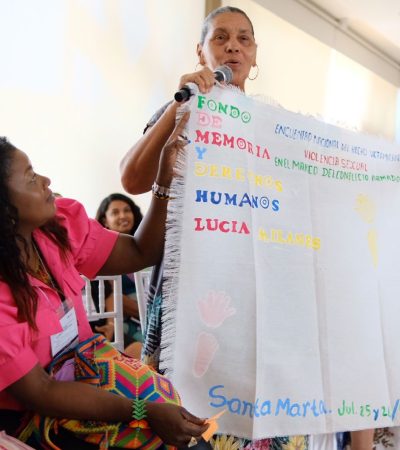 FONDO
DE
MEMORIA
Y
DERECHOS
HUMANOS
LUCIA MILANOS
ENCUENTRO NACIONAL DEL HECHO VICTIMIZANTE
VIOLENCIA SEXUAL
EN EL MARCO DEL CONFLICTO ARMADO
Santa Marta. Jul. 25 y 26/